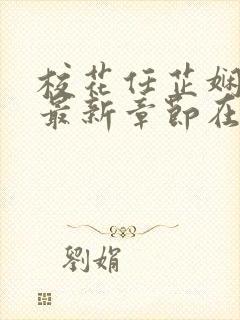 校花任芷娴
最新章节在
劉娟